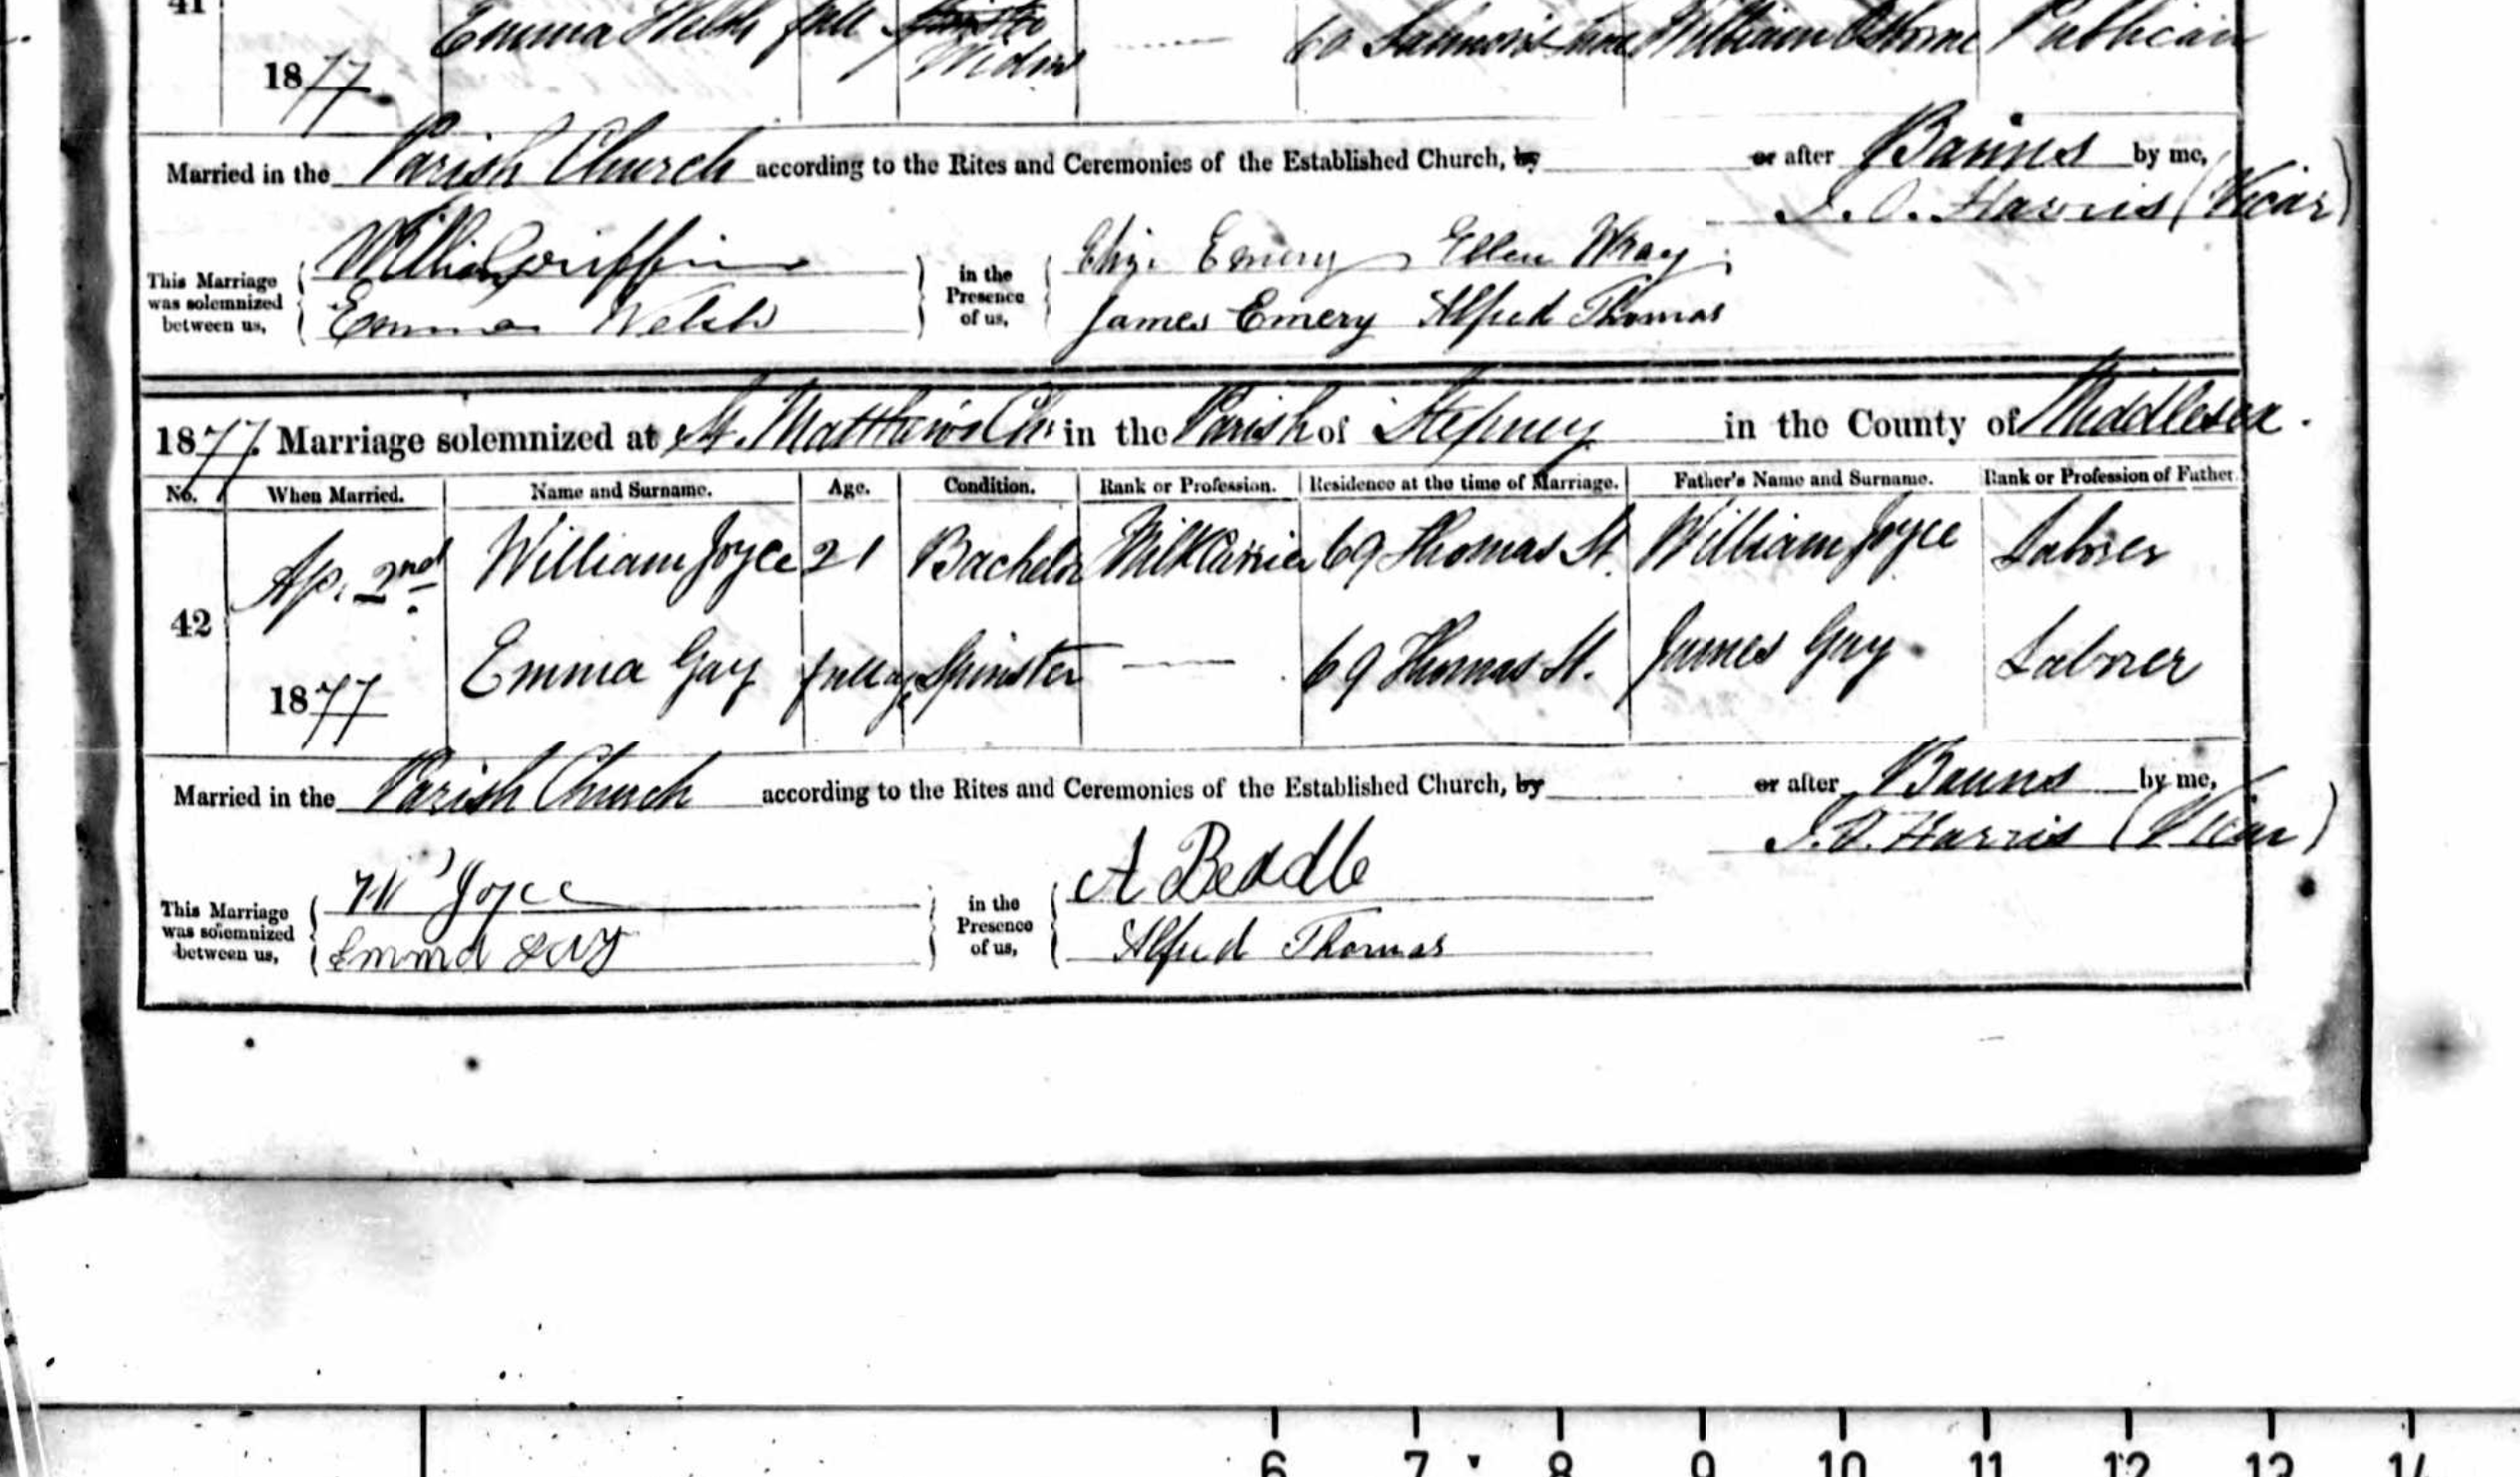 41
Emma Welsh full Widow 60 Salmon's Lane William Osborne Publican
1877
Married in the Parish Church according to the Rites and Ceremonies of the Established Church, by or after Banns by me,
J. O. Harris (Vicar)
William Griffin Eliz. Emery Ellen Wray
This Marriage was solemnized between us, in the Presence of us,
Emma Welsh James Emery Alfred Thomas
1877. Marriage solemnized at St. Matthew's Ch. in the Parish of Stepney in the County of Middlesex.
No. When Married. Name and Surname. Age. Condition. Rank or Profession. Residence at the time of Marriage. Father's Name and Surname. Rank or Profession of Father.
Ap. 2nd William Joyce 21 Bachelor Milk Carrier 69 Thomas St. William Joyce Laborer
42
1877 Emma Gay full age Spinster — 69 Thomas St. James Gay Laborer
Married in the Parish Church according to the Rites and Ceremonies of the Established Church, by or after Banns by me,
J. O. Harris (Vicar)
Wm Joyce A Beddle
This Marriage was solemnized between us, in the Presence of us,
Emma Gay Alfred Thomas
6 7 8 9 10 11 12 13 14